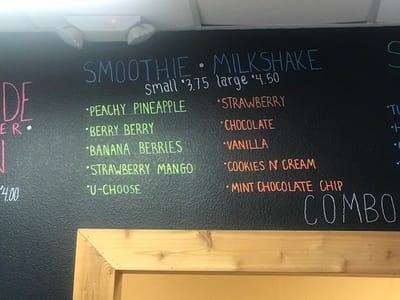 SMOOTHIE • MILKSHAKE
small $3.75 large $4.50
•PEACHY PINEAPPLE
•BERRY BERRY
•BANANA BERRIES
•STRAWBERRY MANGO
•U-CHOOSE
•STRAWBERRY
•CHOCOLATE
•VANILLA
•COOKIES N' CREAM
•MINT CHOCOLATE CHIP
COMBO
$4.00